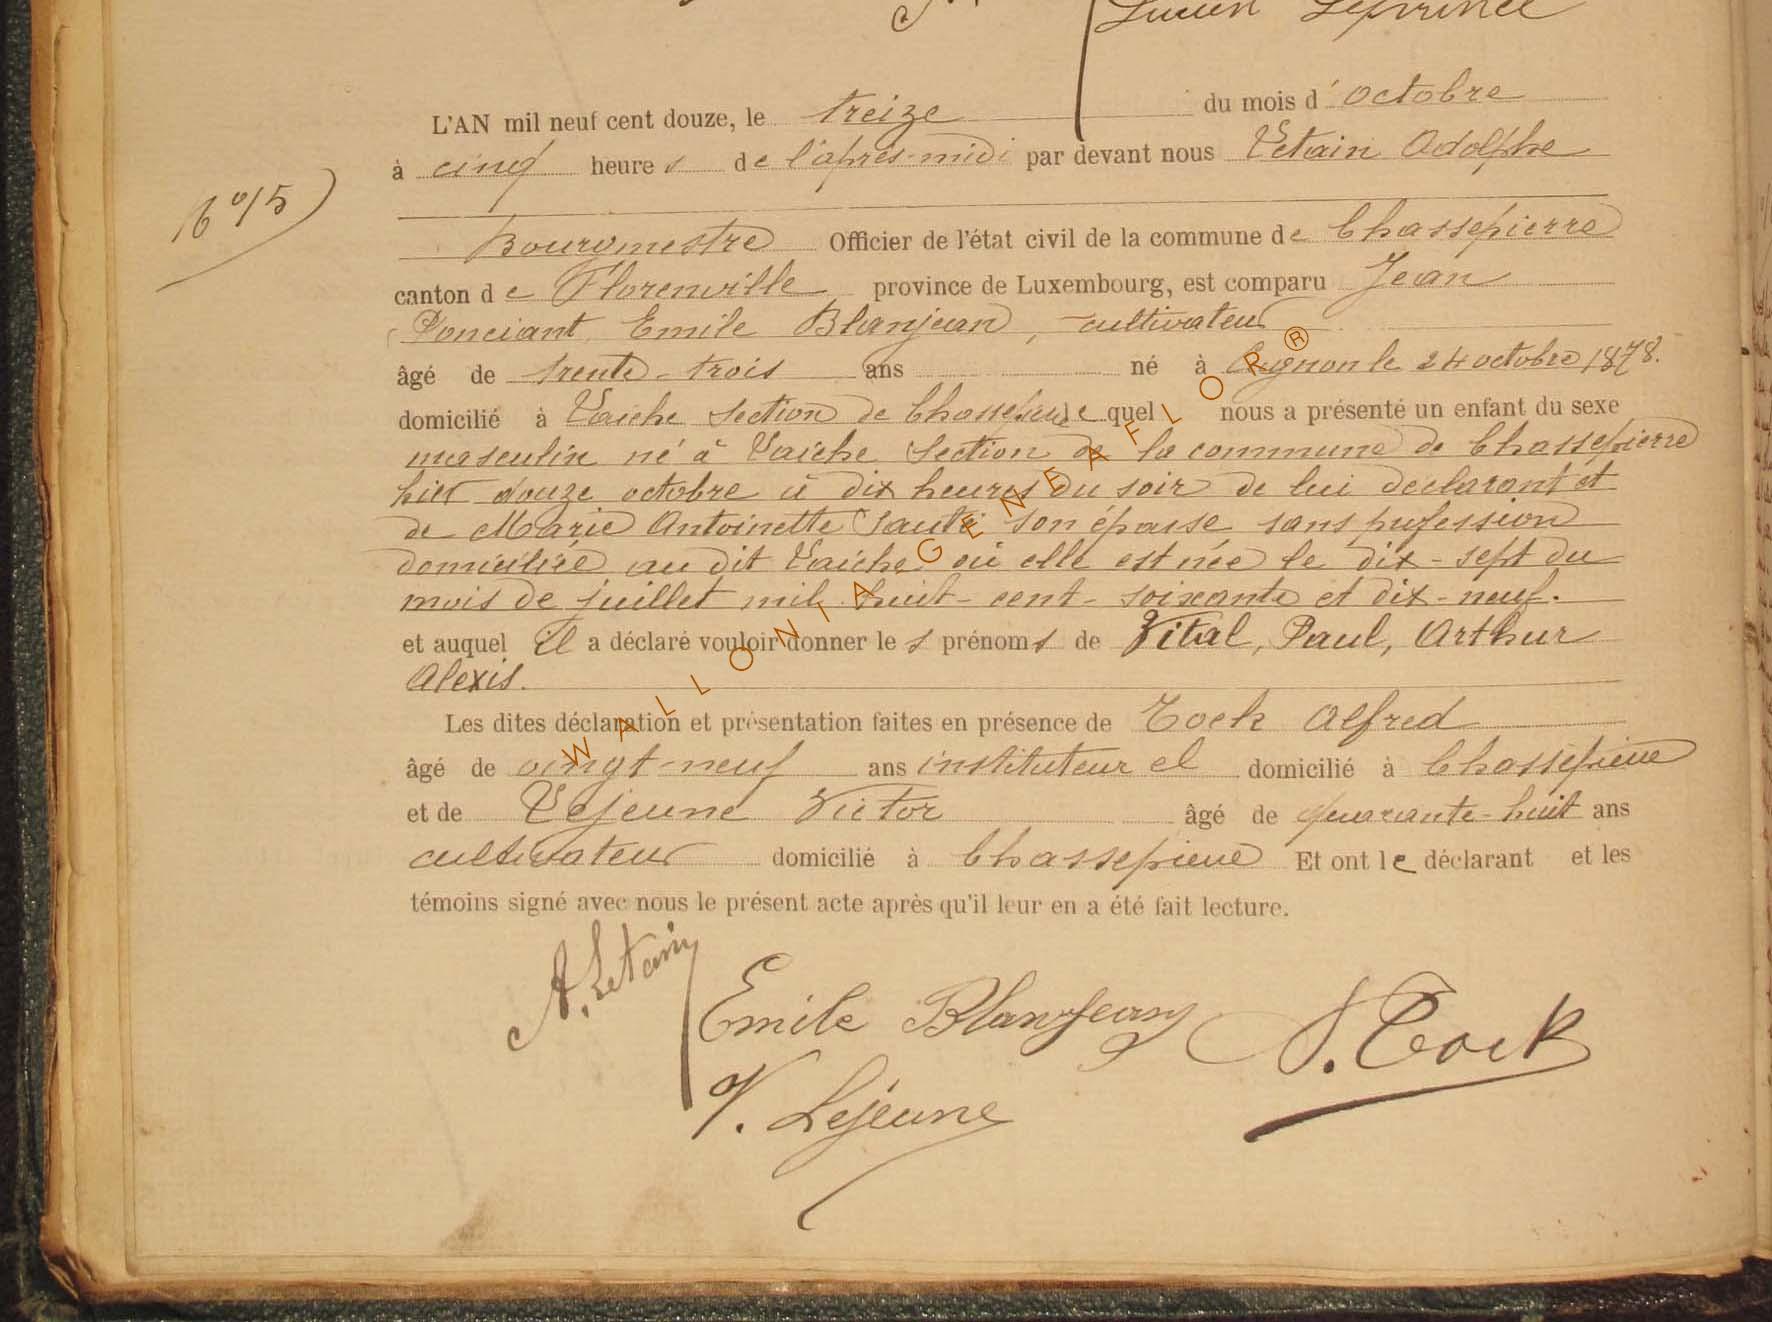 Lucien Leprince
L'AN mil neuf cent douze, le treize du mois d'octobre
à cinq heures de l'après-midi par devant nous Letain Adolphe
N° 15
Bourgmestre Officier de l'état civil de la commune de Chassepierre
canton de Florenville province de Luxembourg, est comparu Jean
Ponciant Emile Blanjean, cultivateur
âgé de trente-trois ans né à Cugnon le 24 octobre 1878.
domicilié à Laiche section de Chassepierre lequel nous a présenté un enfant du sexe
masculin né à Laiche section de la commune de Chassepierre
hier douze octobre à dix heures du soir de lui déclarant et
de Marie Antoinette son épouse sans profession
domiciliée au dit Laiche où elle est née le dix-sept du
mois de juillet mil huit-cent-soixante et dix-neuf.
et auquel il a déclaré vouloir donner les prénoms de Vital, Paul, Arthur
Alexis.
Les dites déclaration et présentation faites en présence de Tock Alfred
âgé de vingt-neuf ans instituteur et domicilié à Chassepierre
et de Lejeune Victor âgé de quarante-huit ans
cultivateur domicilié à Chassepierre Et ont le déclarant et les
témoins signé avec nous le présent acte après qu'il leur en a été fait lecture.
A. Letain
Emile Blanjean
A. Tock
V. Lejeune
WALLONIA GENEAFLOR®